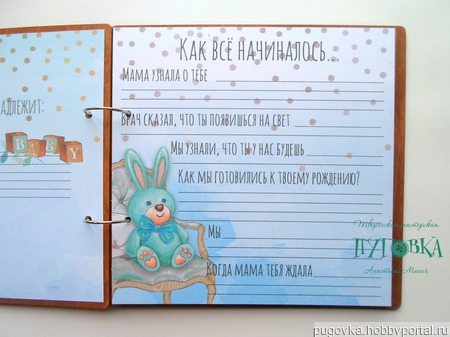 АДЛЕЖИТ:
BABY
Как всё начиналось...
Мама узнала о тебе
Врач сказал, что ты появишься на свет
Мы узнали, что ты у нас будешь
Как мы готовились к твоему рождению?
Мы
Когда мама тебя ждала
Творческая мастерская
ПУГОВКА
Анастасии Манеч
pugovka.hobbyportal.ru